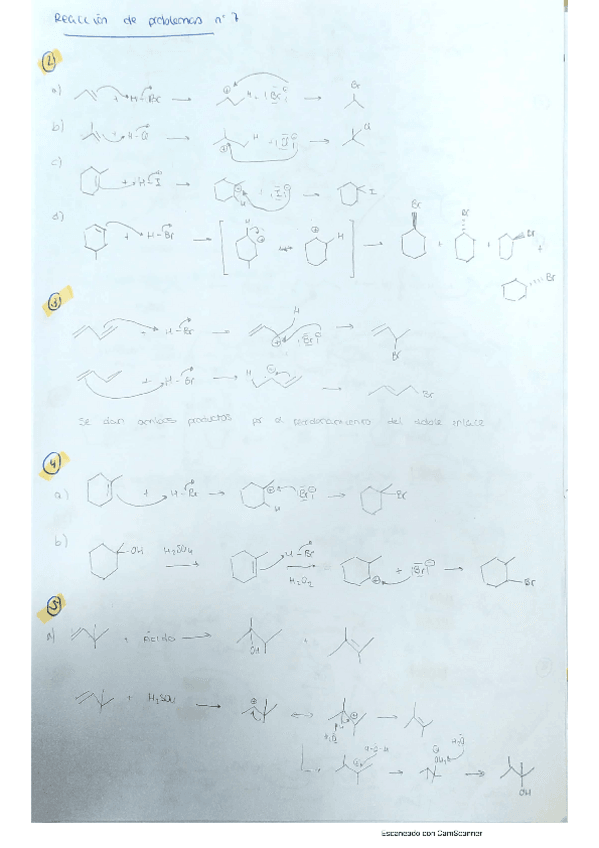 Reacción de problemas nº 7
2
a) + H-Br → H + Br → Br
b) + H-Cl → H + Cl → Cl
c) + H-I → H + I → I
d) + H-Br → H H → Br + Br + Br +
Br
3
H
+ H-Br → + Br → Br
+ H-Br → H → Br
Se dan ambos productos por el del doble enlace
4
a) + H-Br → H Br → Br
b) OH H2SO4 → H-Br H2O2 → + Br → Br
5
a) + Ácido → OH +
+ H2SO4 →
OH
Escaneado con CamScanner